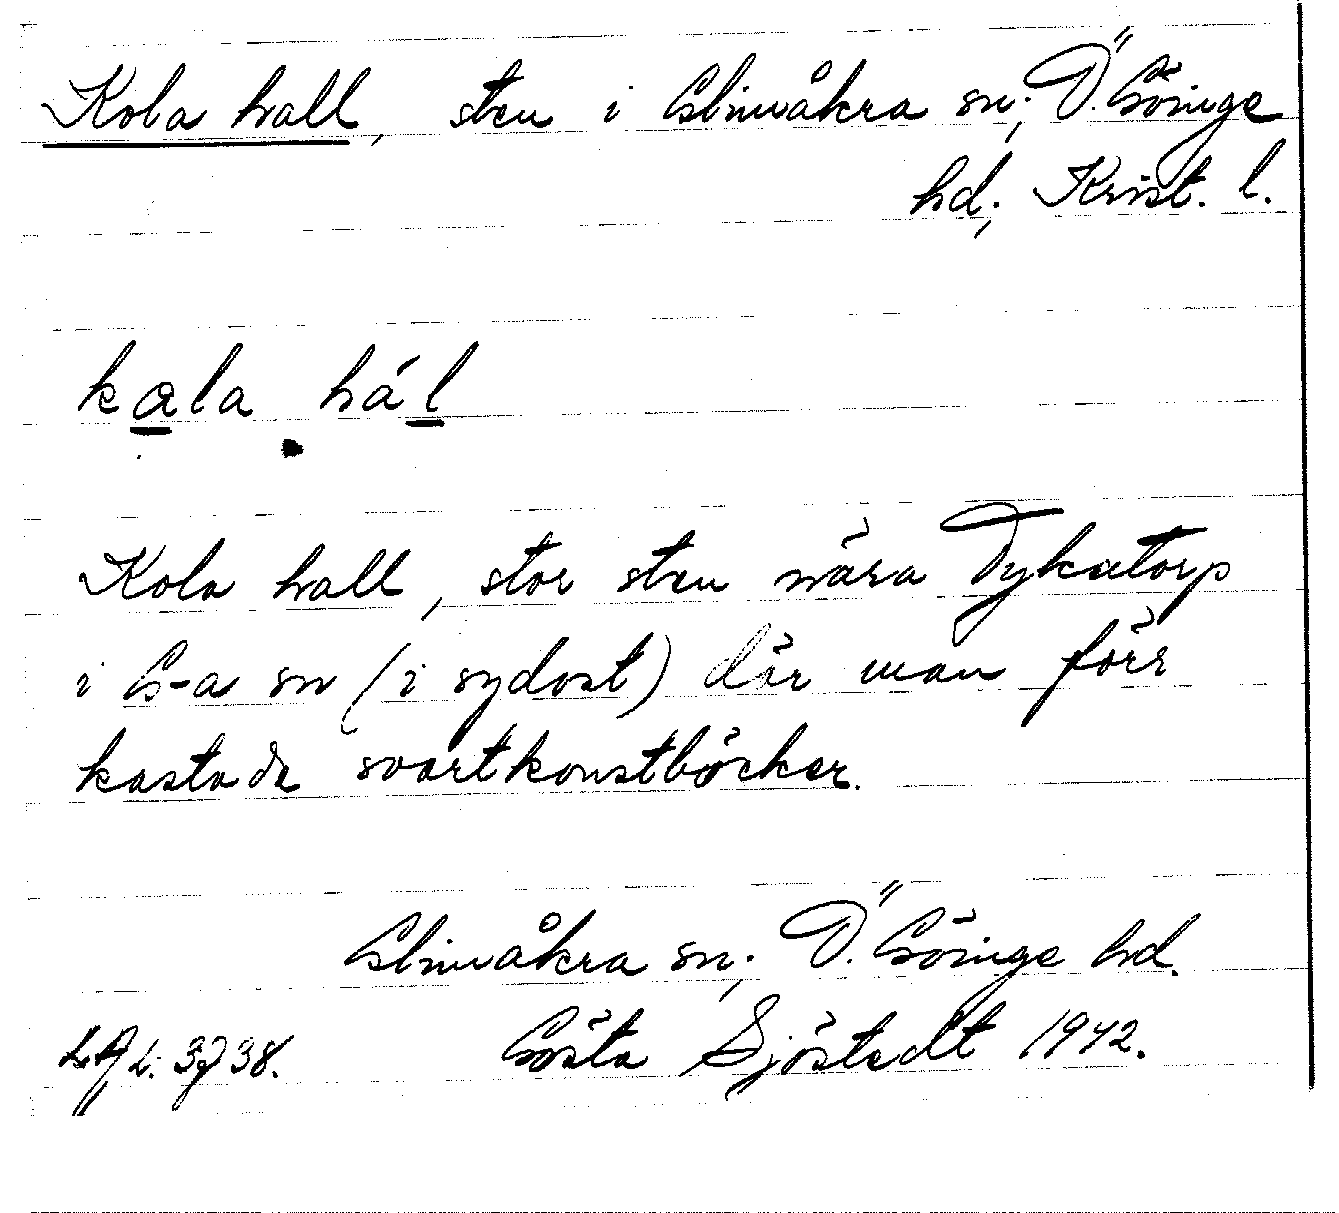 Kola hall, sten i Glimåkra sn; Ö. Göinge
hd; Krist. l.
kala hál
Kola hall, stor sten nära Tykatorp
i G-a sn (i sydost) där man förr
kastade svartkonstböcker.
Glimåkra sn; Ö. Göinge hd.
Gösta Sjöstedt 1942.